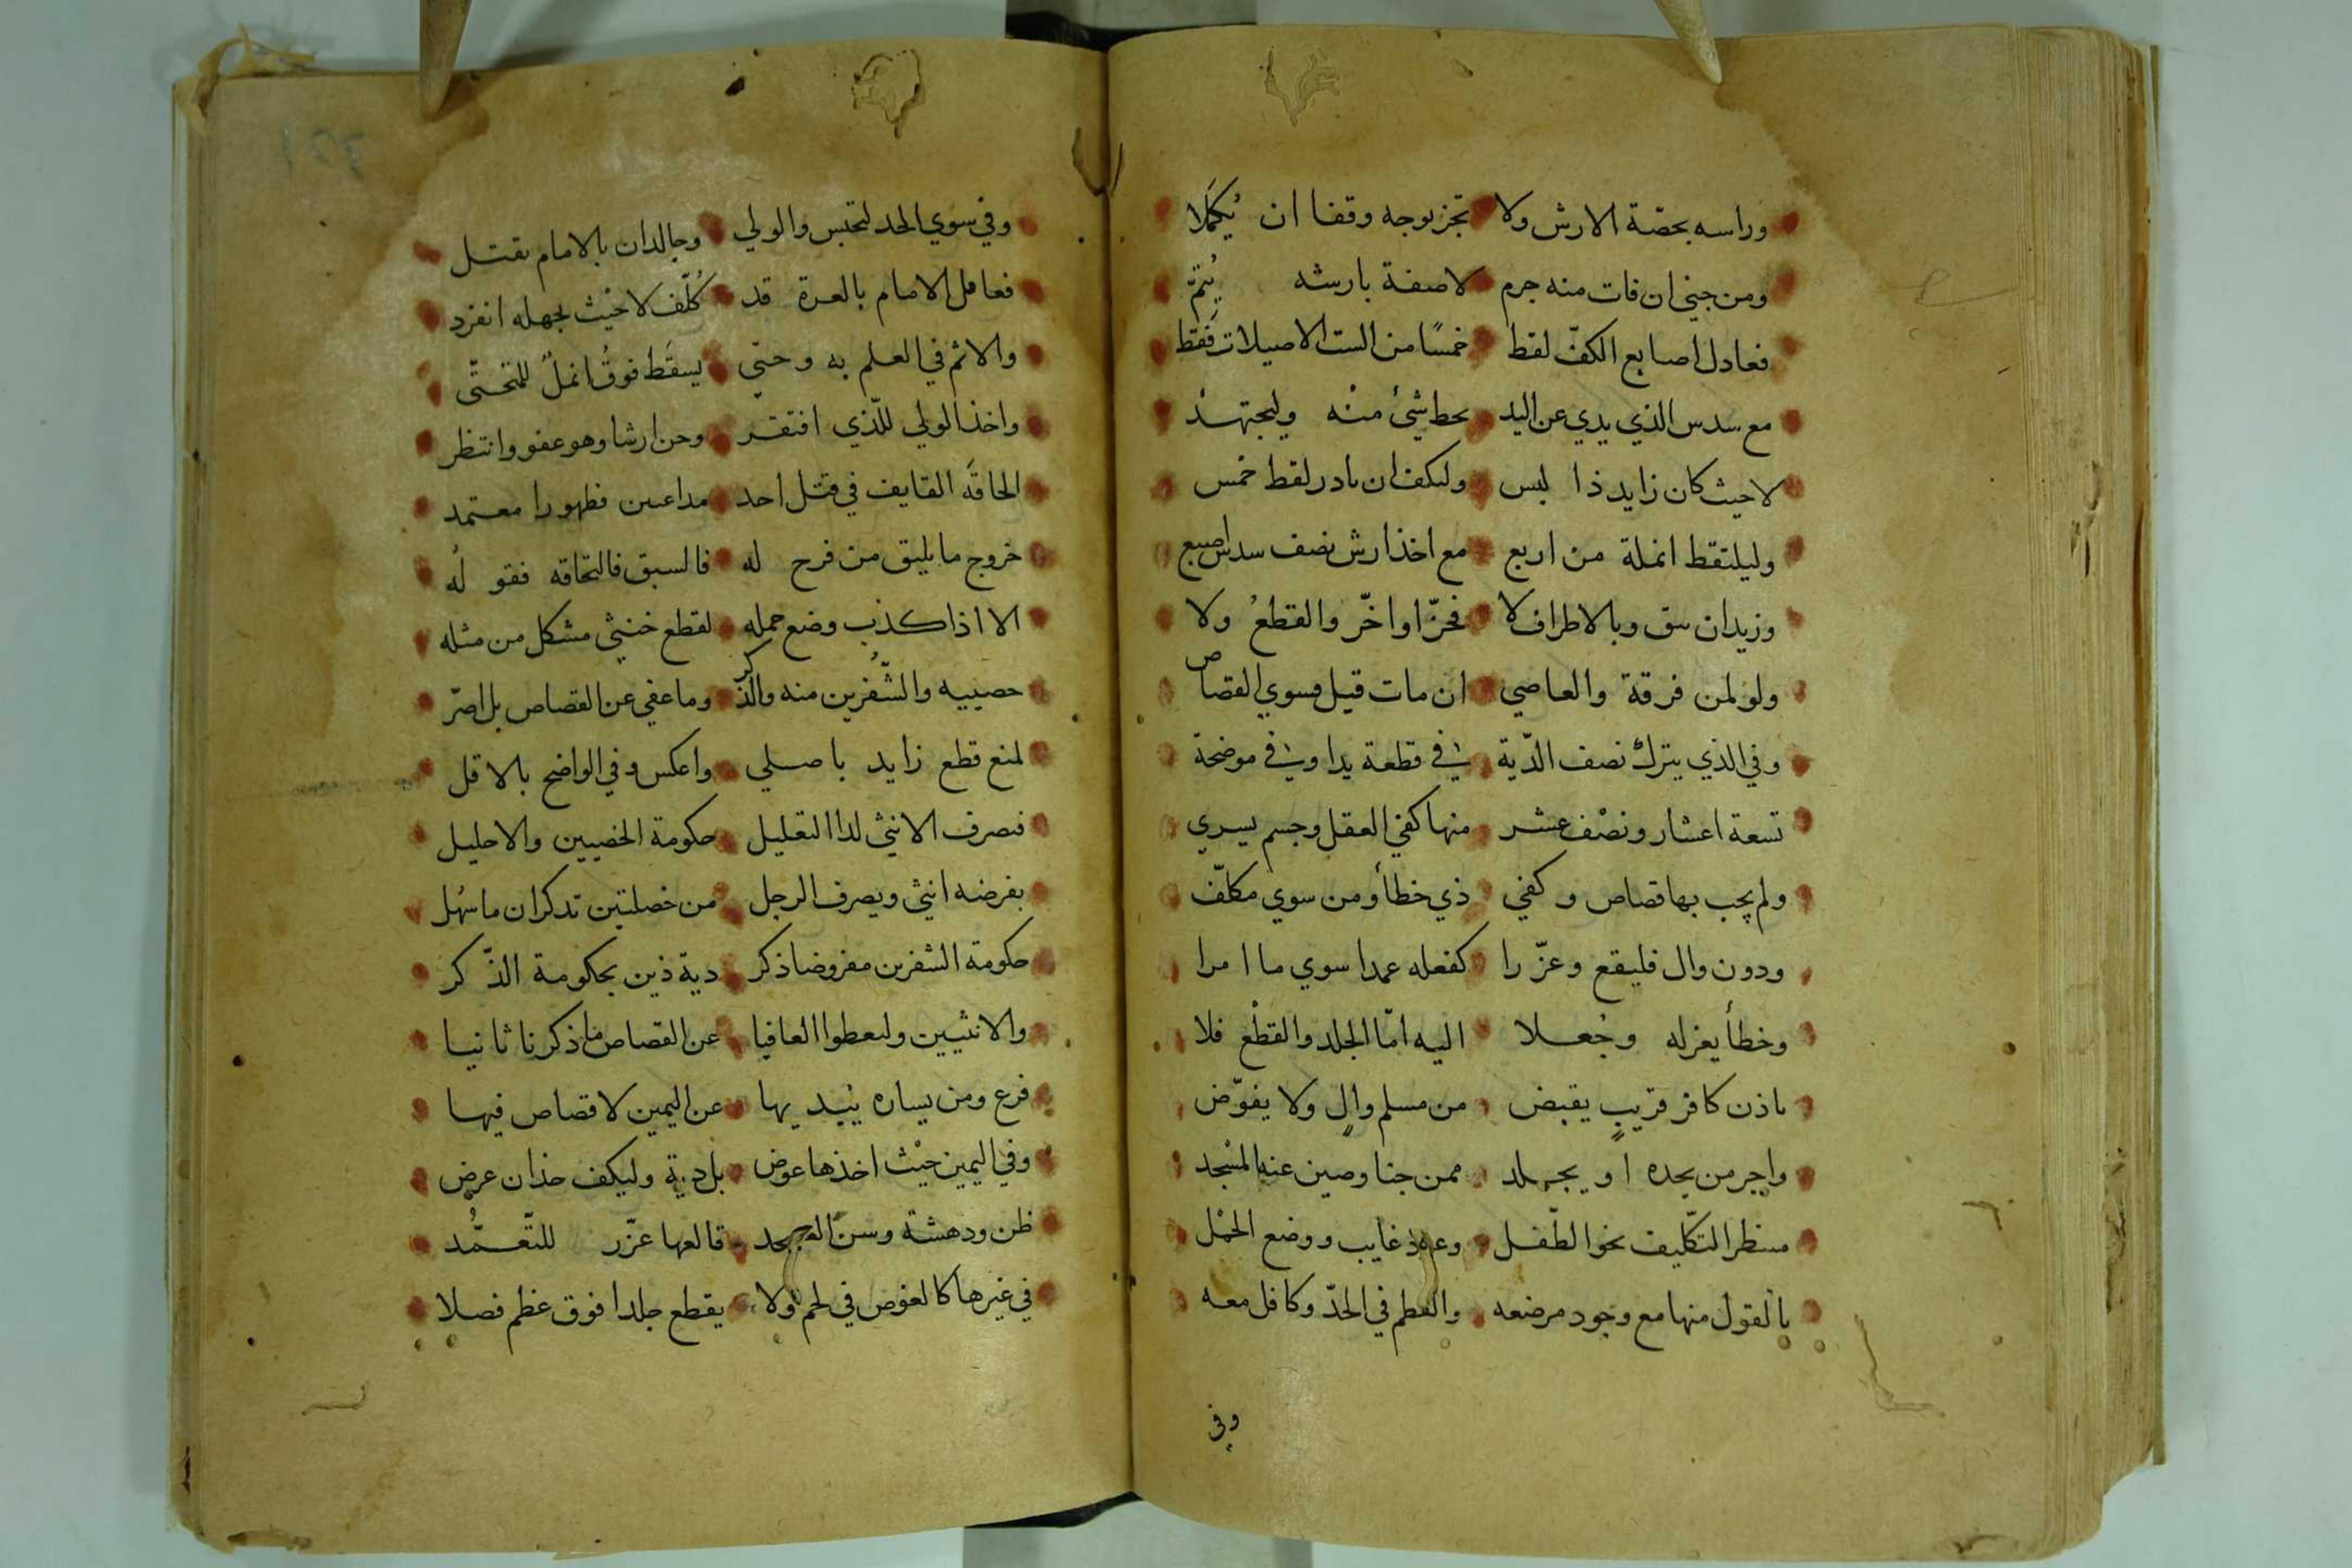 وراسه بحصّة الارش ولا تجز بوجه وقفا ان يُكمَلا
ومن جني ان فات منه جرم لا صفة بارشه يُتمّ
فعادل اصابع الكفّ لقط خمسًا من الست الاصيلات فَقط
مع سدس الذي يدي عن اليد بحط شيئ منْه وليجتهدْ
لا حيث كان زايد ذا لبس وليكف ان بادر لقط خمس
وليلتقط انملة من اربع مع اخذ ارش نصف سدس اصبع
وزيد ان شق وبالاطراف لا فحزّ او اخّر والقطعُ ولا
ولو لمن فرقة والعاصي ان مات قيل وسوي القصاص
وفي الذي يترك نصف الدّية في قطعة يدا وفي موضحة
تسعة اعشار ونصْف عشر منها كفي العقل وجسم يسري
ولم يجب بها قصاص وكفي ذي خطأ ومن سوي مكلّف
ودون وال فليقع وعزّرا كفعله عمدا سوي ما امرا
وخطأ يعزله وجُعلا اليه امّا الجلد والقطْع فلا
باذن كافر قريبٍ يقبض من مسلم والٍ ولا يفوّض
واجر من يحده او يجلد ممن جنا وصين عنه المسْجد
منتظر التكليف نحو الطّفل وعود غايب ووضع الحمْل
بالقول منها مع وجود مرضعه والفطم في الحدّ وكافل معه
وفي
وفي سوي الحد لتحتبس والولي وجالدان بالامام يقتل
فعاقل الامام بالعرة قد كُلّف لا حيْث بجهله انفرد
والاثم في العلم به وحتي يسقَط فوقُ انملٌ للمتحتّي
واخذ الولي للّذي افتقر وحن ارشا وهو عفو وانتظر
الحاقَه القايف في قتل احد مداعيين فظهورا معتمد
خروج ما يليق من فرح له فالسبق فالتحاقه فقولُه
الا اذا كذب وضع حمله لقطع خنثي مشكل من مثله
خصييه والشّفرين منه والذكر وما عفي عن القصاص بل اصرّ
لمنع قطع زايد باصلي واعكس وفي الواضح بالاقل
فصرف الانثي لدا التعليل حكومة الخصيين والاحليل
بفرضه انثي ويصرف الرجل من خصلتين تدكران ما سُهل
حكومة الشفرين مفروضا ذكر دية ذين بحكومة الذّكر
والانثيين وليعطوا العافيا عن القصاص ما ذكرنا ثانيا
فرع ومن يساره يُبديها عن اليمين لا قصاص فيها
وفي اليمين حيْث اخذها عوض بل دية وليكف حذان عرض
ظن ودهشة وسن قالعها عزّر للتّعمُّد
في غيرها كالغوص في لحم ولا يقطع جلدا فوق عظم فصلا